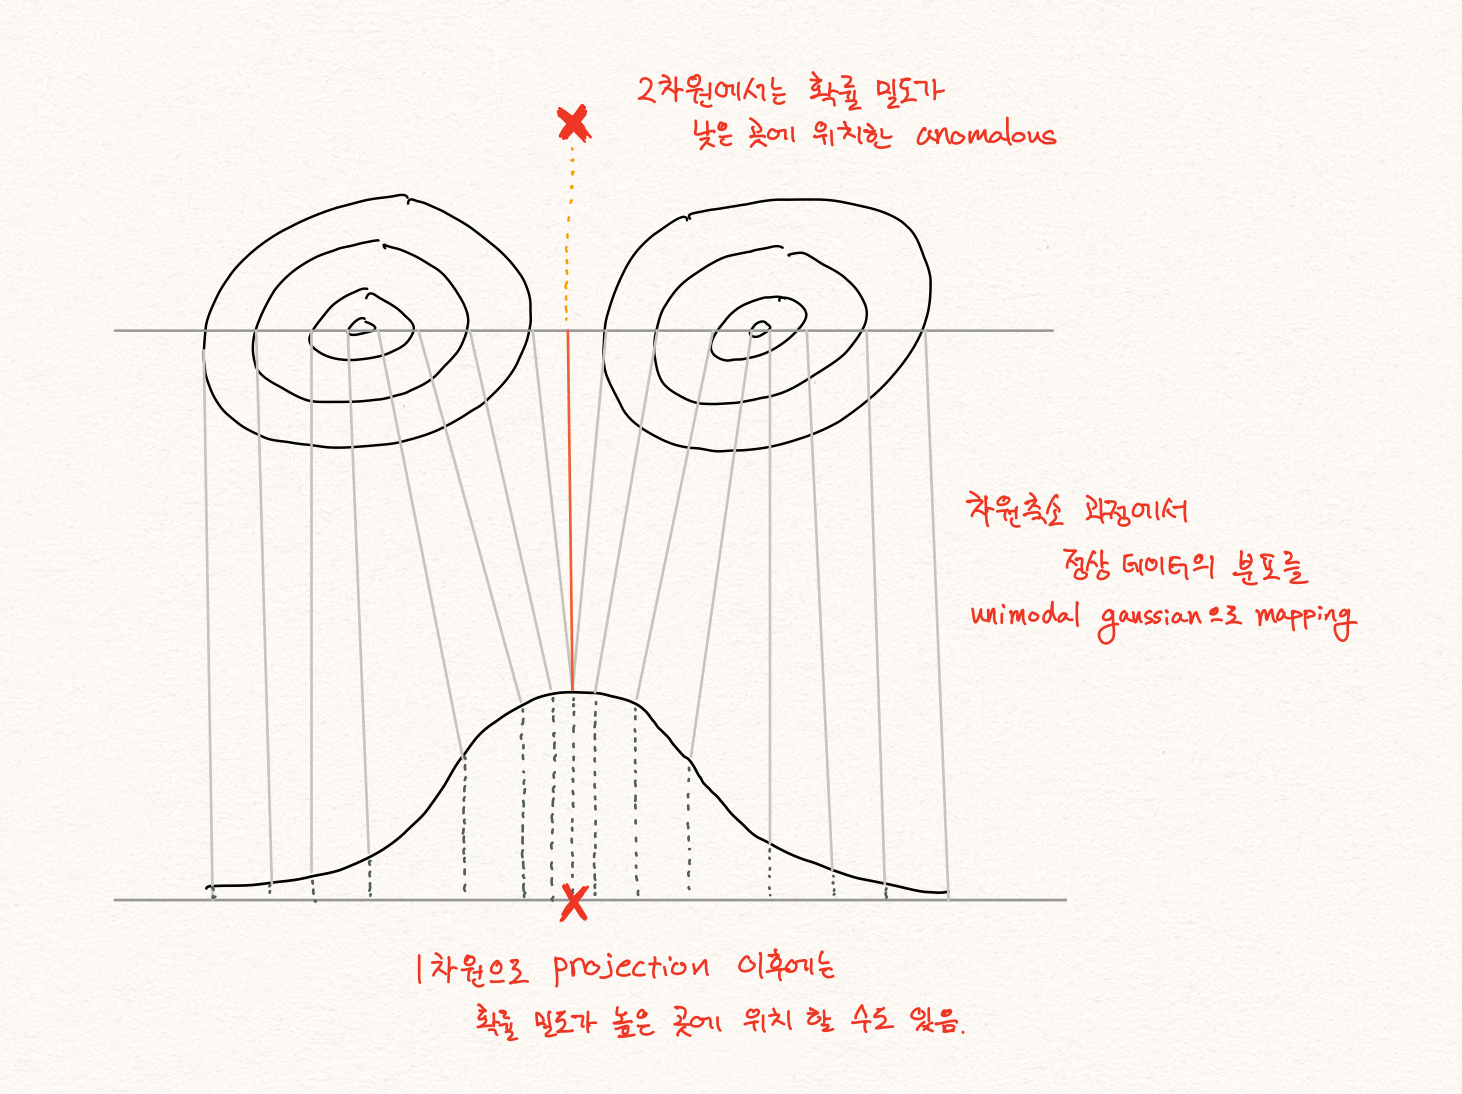 2차원에서는 확률 밀도가
낮은 곳에 위치한 anomalous
차원축소 과정에서
정상 데이터의 분포를
unimodal gaussian으로 mapping
1차원으로 projection 이후에는
확률 밀도가 높은 곳에 위치 할 수도 있음.